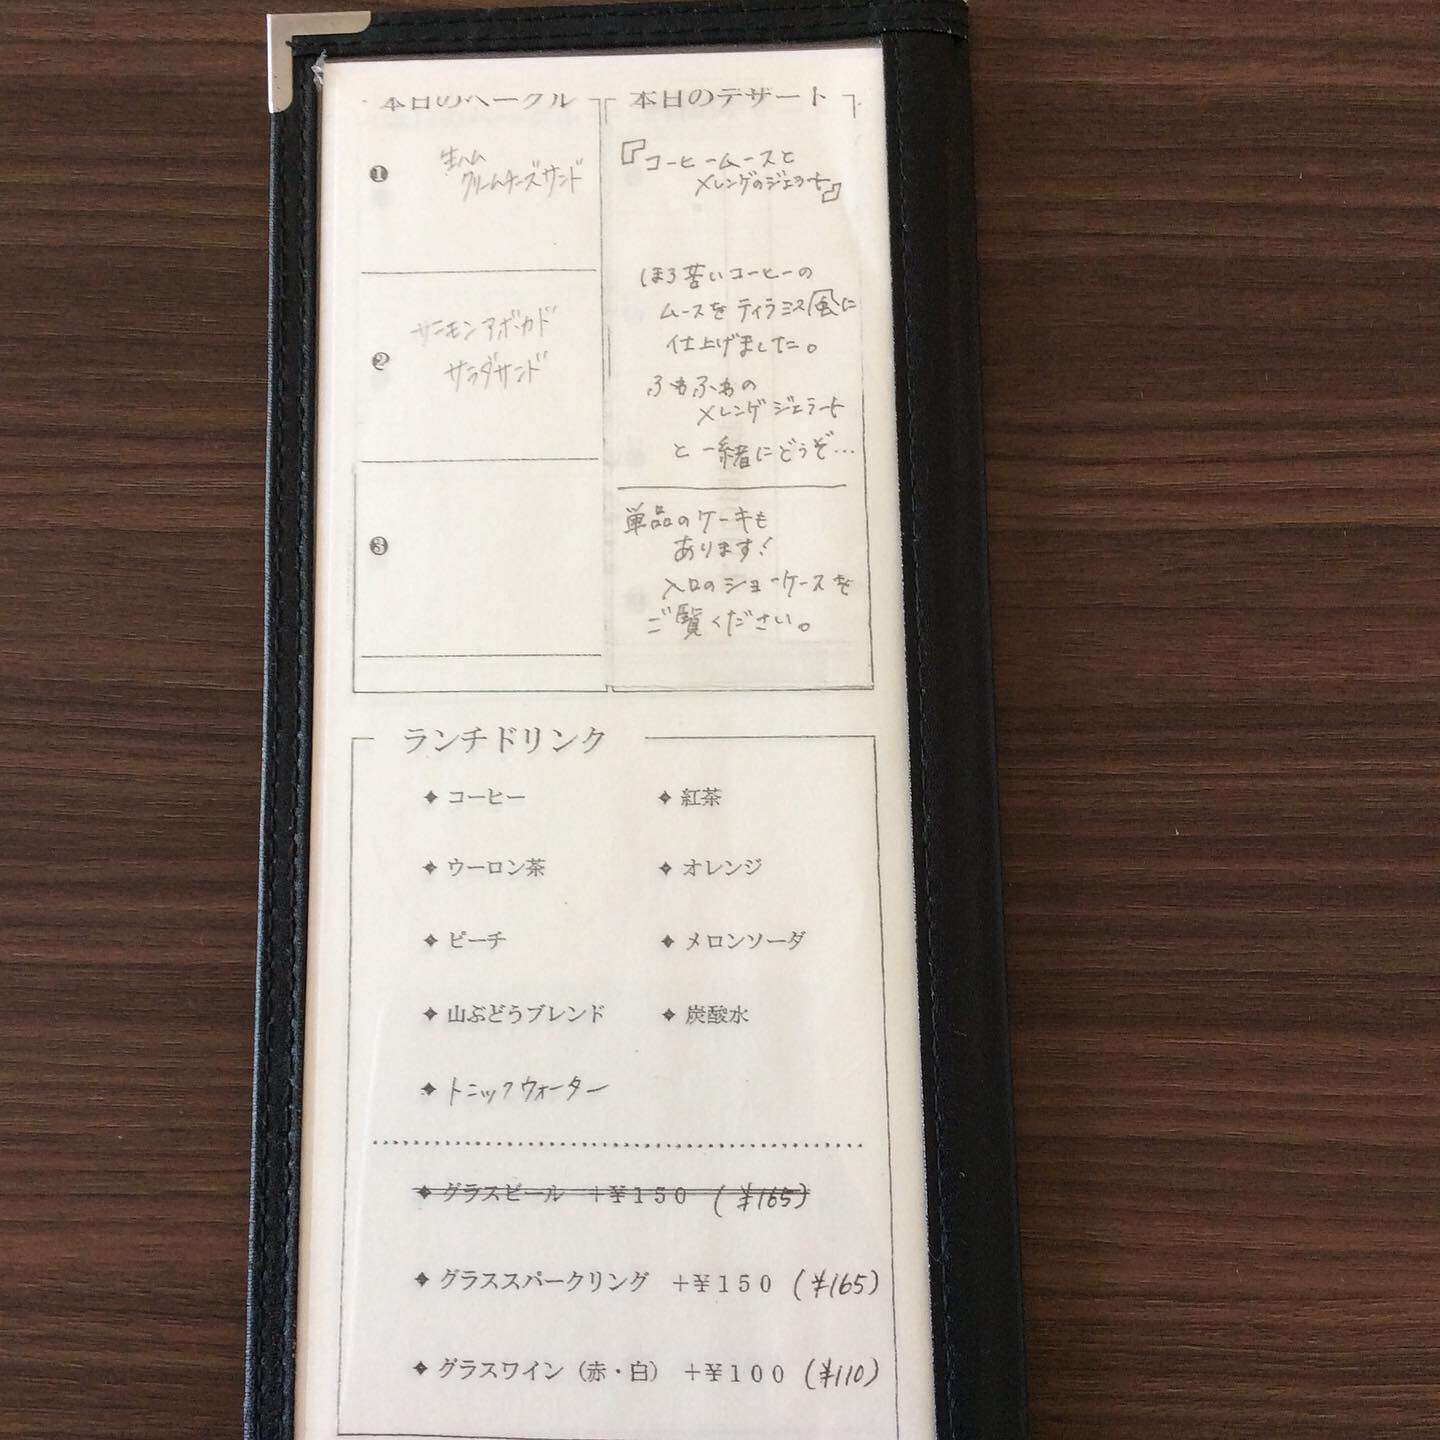 本日のベーグル
❶ 生ハム
クリームチーズサンド
❷ サーモンアボカド
サラダサンド
❸
本日のデザート
『コーヒームースと
メレンゲのジェラート』
ほろ苦いコーヒーの
ムースをティラミス風に
仕上げました。
ふわふわの
メレンゲジェラート
と一緒にどうぞ…
単品のケーキも
あります!
入口のショーケースを
ご覧ください。
ランチドリンク
コーヒー 紅茶
ウーロン茶 オレンジ
ピーチ メロンソーダ
山ぶどうブレンド 炭酸水
トニックウォーター
グラスビール +¥150 (¥165)
グラススパークリング +¥150 (¥165)
グラスワイン(赤・白) +¥100 (¥110)